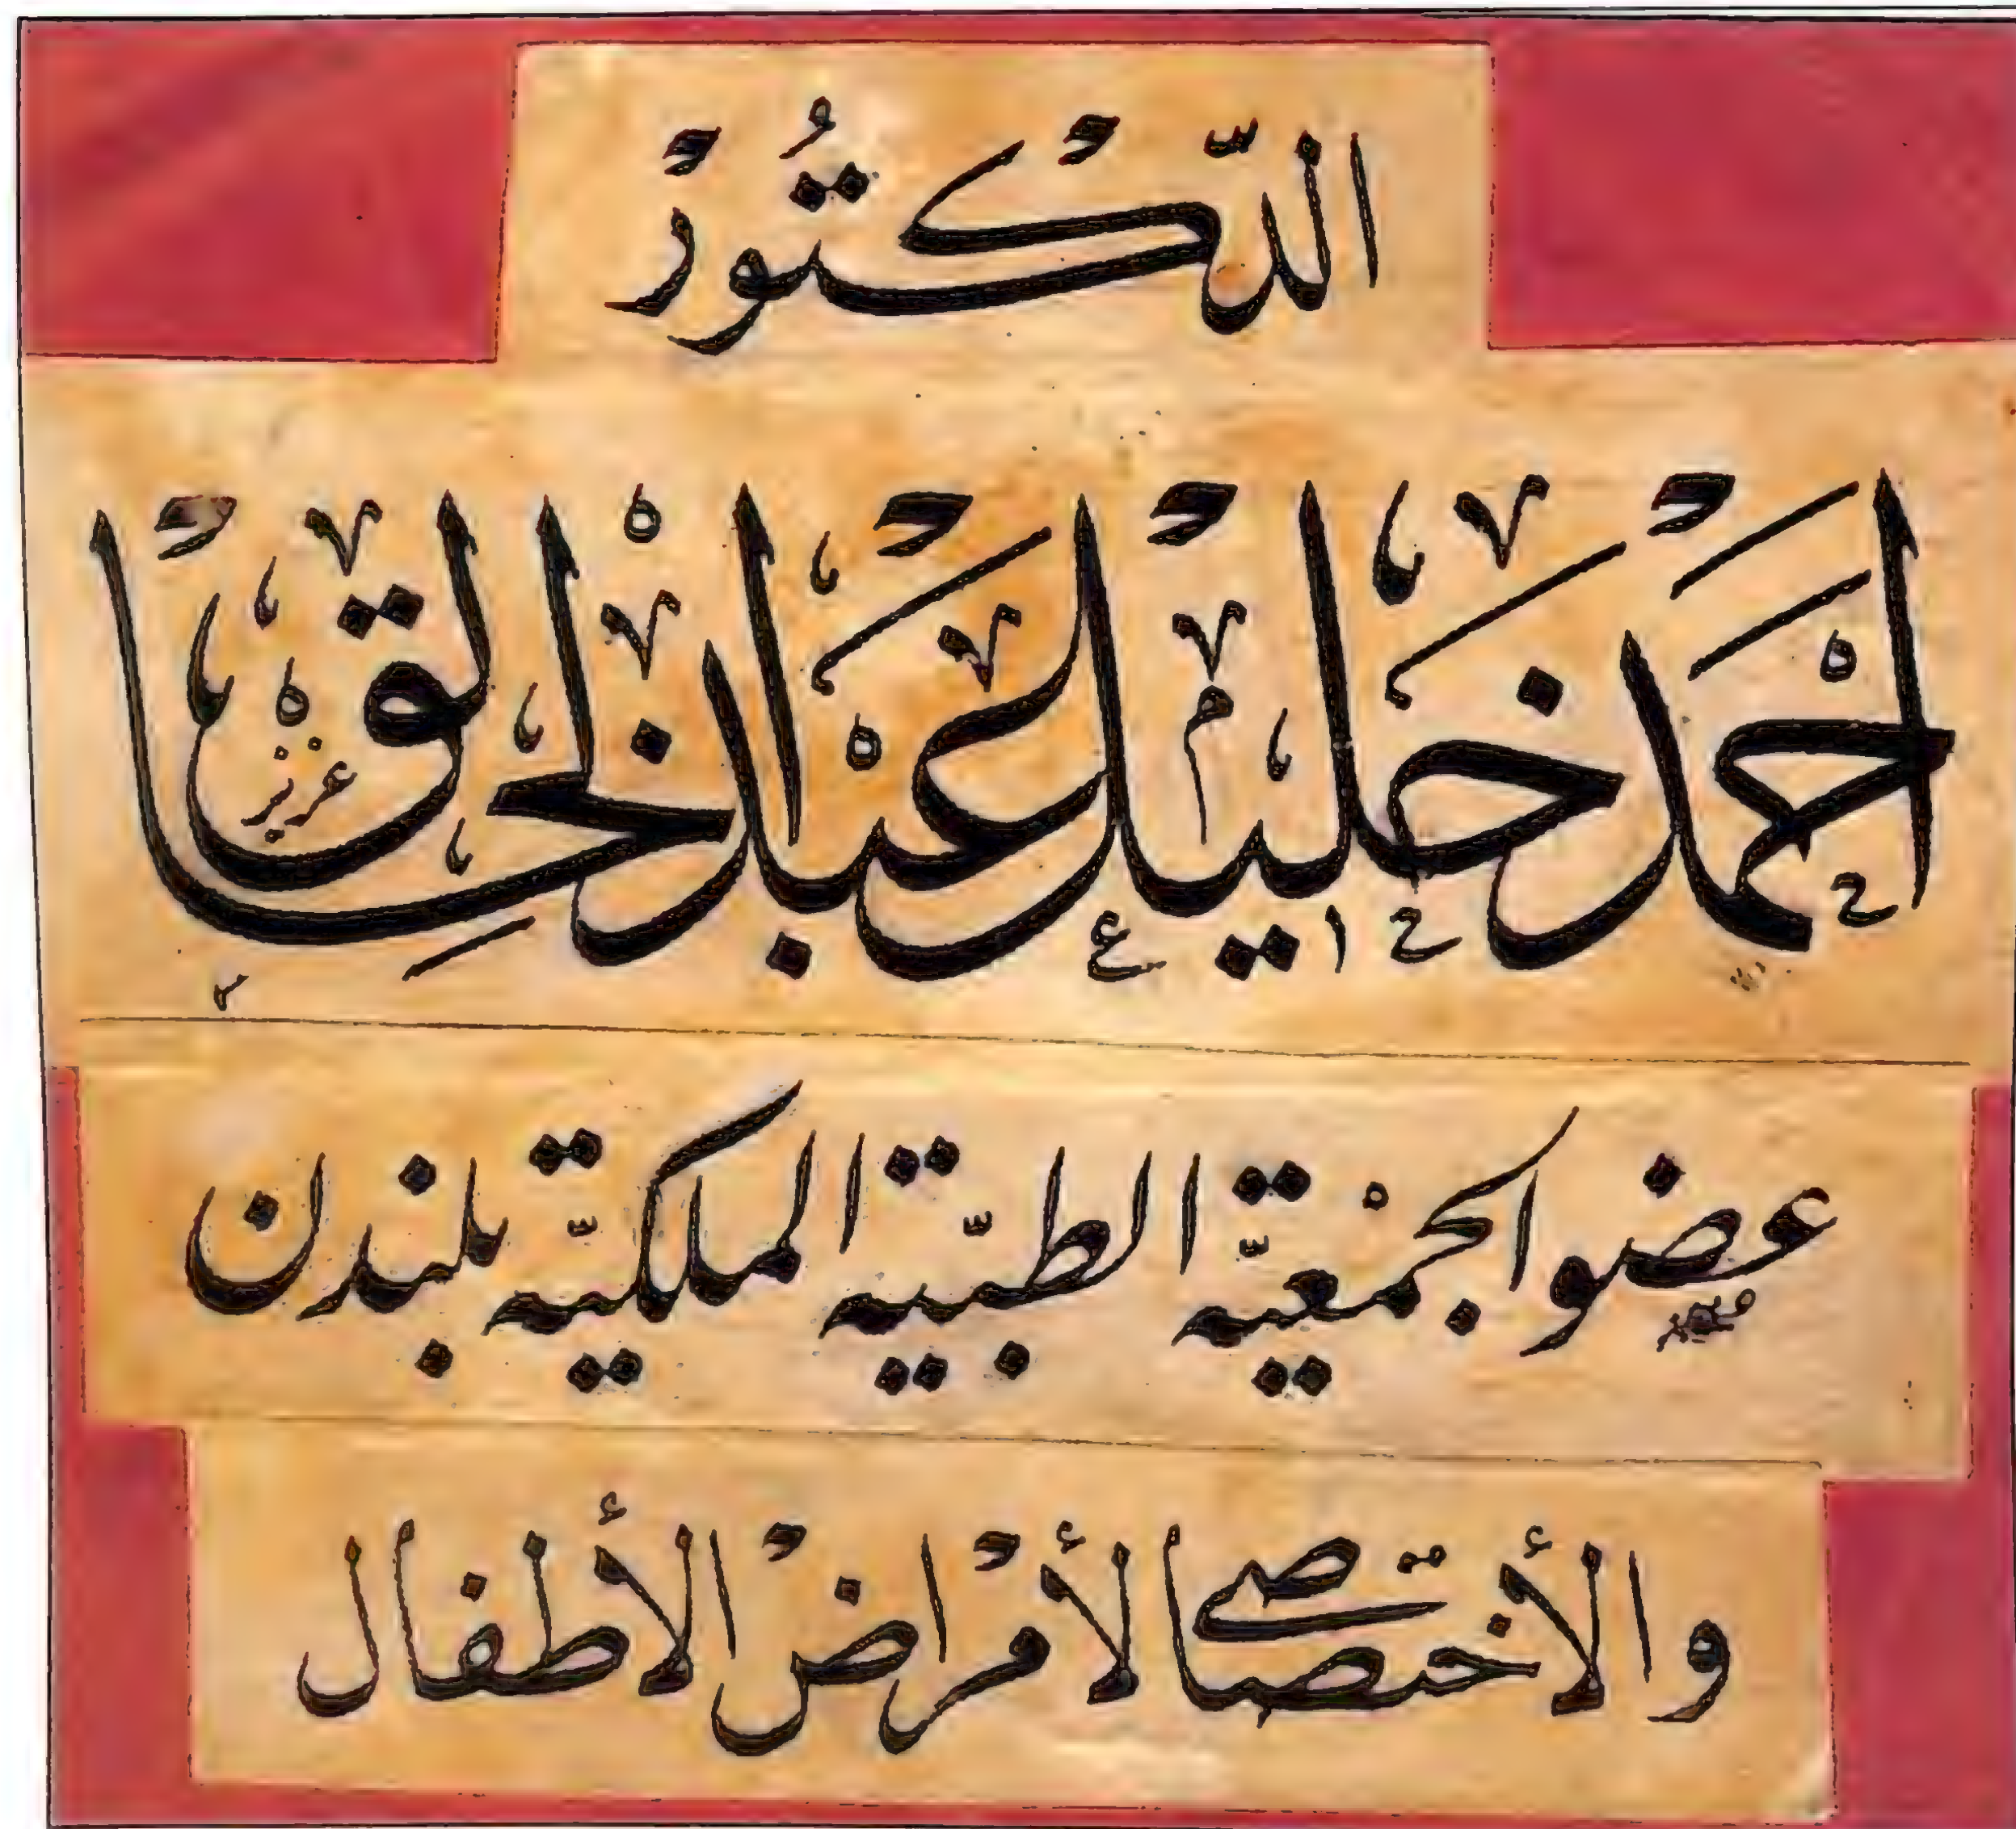 الدّكْتُورْ
احمد خليل عبد الخالق
عزيز
عضو الجمعيّة الطبيّة الملكيّة بلندن
والأختصاصي لأمراض الأطفال